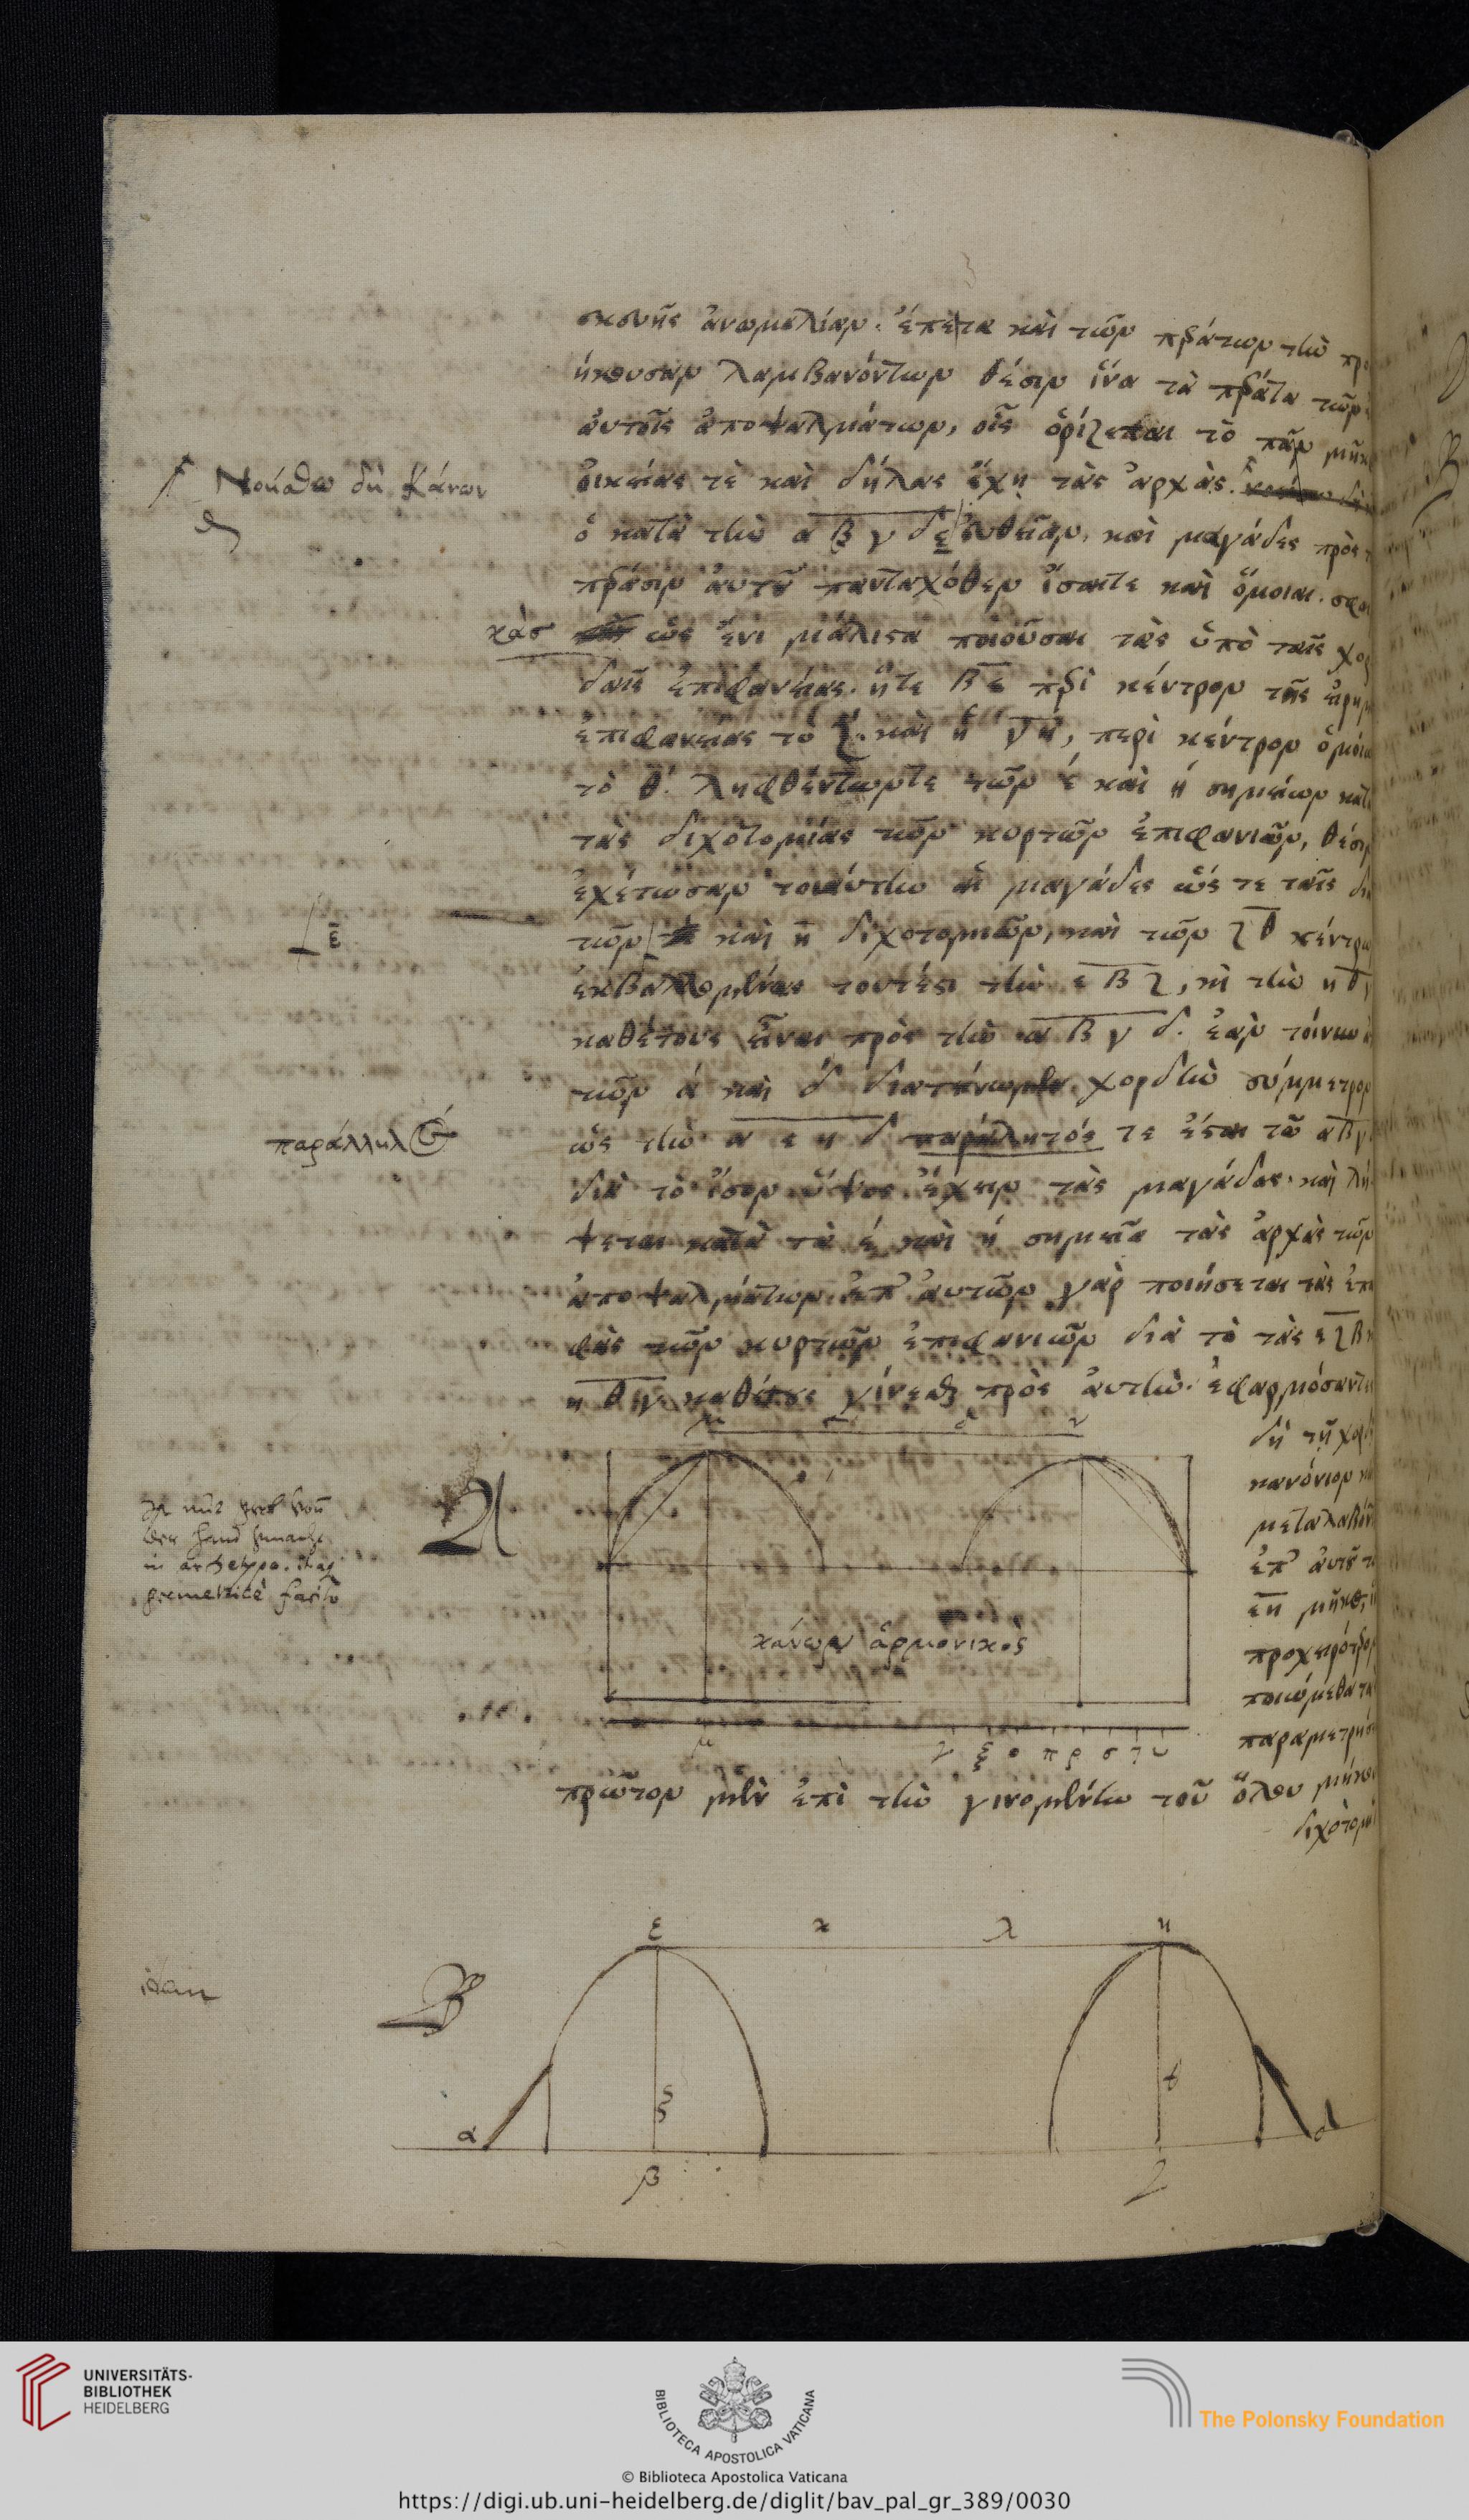 σκευῆς ἀνωμαλίαν· ἔπειτα καὶ τῶν περάτων τὴν προ
ήκουσαν λαμβανόντων θέσιν ἵνα τὰ πέρατα τῶν
αὐτοῖς ἀποψαλμάτων, οἷς ὁρίζεται τὸ πᾶν μῆκ
οἰκείας τὲ καὶ δήλας ἔχῃ τὰς ἀρχὰς.
Νοείσθω δὴ κάνων
ὁ κατὰ τὴν α β γ δ εὐθεῖαν, καὶ μαγάδες πρὸς
πέρασιν αὐτοῦ πανταχόθεν ἴσαιτε καὶ ὅμοιαι. σφαι
κὰσ ὡς ἔνι μάλιστα ποιοῦσαι τὰς ὑπὸ ταῖς χορ
δαῖς ἐπιφανείας. ἥτε β ε περὶ κέντρον τῆς εἰρημ
ἐπιφανείας τὸ ζ. καὶ ἡ γ η, περὶ κέντρον ὁμοίω
τὸ θ. ληφθέντωντε τῶν έ καὶ ή σημείων κατὰ
τὰς διχοτομίας τῶν κυρτῶν ἐπιφανιῶν, θέσιν
ἐχέτωσαν τοιαύτην αἱ μαγάδες ὥς τε ταῖς δια
ε̄
τῶν καὶ η διχοτομιῶν, καὶ τῶν ζ θ κέντρω
ἐκβαλλομένας τουτέστι τὴν ε β ζ, κὶ τὴν η θ
καθέτους εἶναι πρὸς τὴν α β γ δ. ἐὰν τοίνυν
τῶν ά καὶ δ διατείνωμεν χορδὴν σύμμετρον
παράλληλός
ὡς τὴν α ε η δ παράλητός τε ἔσται τῷ αβγ
διὰ τὸ ἴσον ὕψος ἔχειν τὰς μαγάδας· καὶ λή
ψεται κατὰ τὰ έ καὶ ή σημεῖα τὰς ἀρχὰς τῶν
ἀποψαλμάτων. ἐπ' αὐτῶν γὰρ ποιήσεται τὰς ἐπα
φὰς τῶν κυρτῶν ἐπιφανιῶν διὰ τὸ τὰς εζβ κ
η θ γ καθέτους γίνεσθαι πρὸς αὐτὴν. ἐφαρμόσαντε
δὴ τῇ χορδ
κανόνιον κ
μεταλαβόν
ἐπ' αὐτὸ τ
εη μῆκος,
προχειρότερον
ποιώμεθα τὰ
παραμετρήσε
A
geometricè
κάνων ἁρμονικὸς
μ ν ξ ο π ρ σ τ υ
πρῶτον μὲν ἐπὶ τὴν γινομένην τοῦ ὅλου μήκου
διχοτομί
ε κ λ η
idem
B
ζ θ
α δ
β γ
UNIVERSITÄTS-
BIBLIOTHEK
HEIDELBERG
BIBLIOTECA APOSTOLICA VATICANA
The Polonsky Foundation
© Biblioteca Apostolica Vaticana
https://digi.ub.uni-heidelberg.de/diglit/bav_pal_gr_389/0030